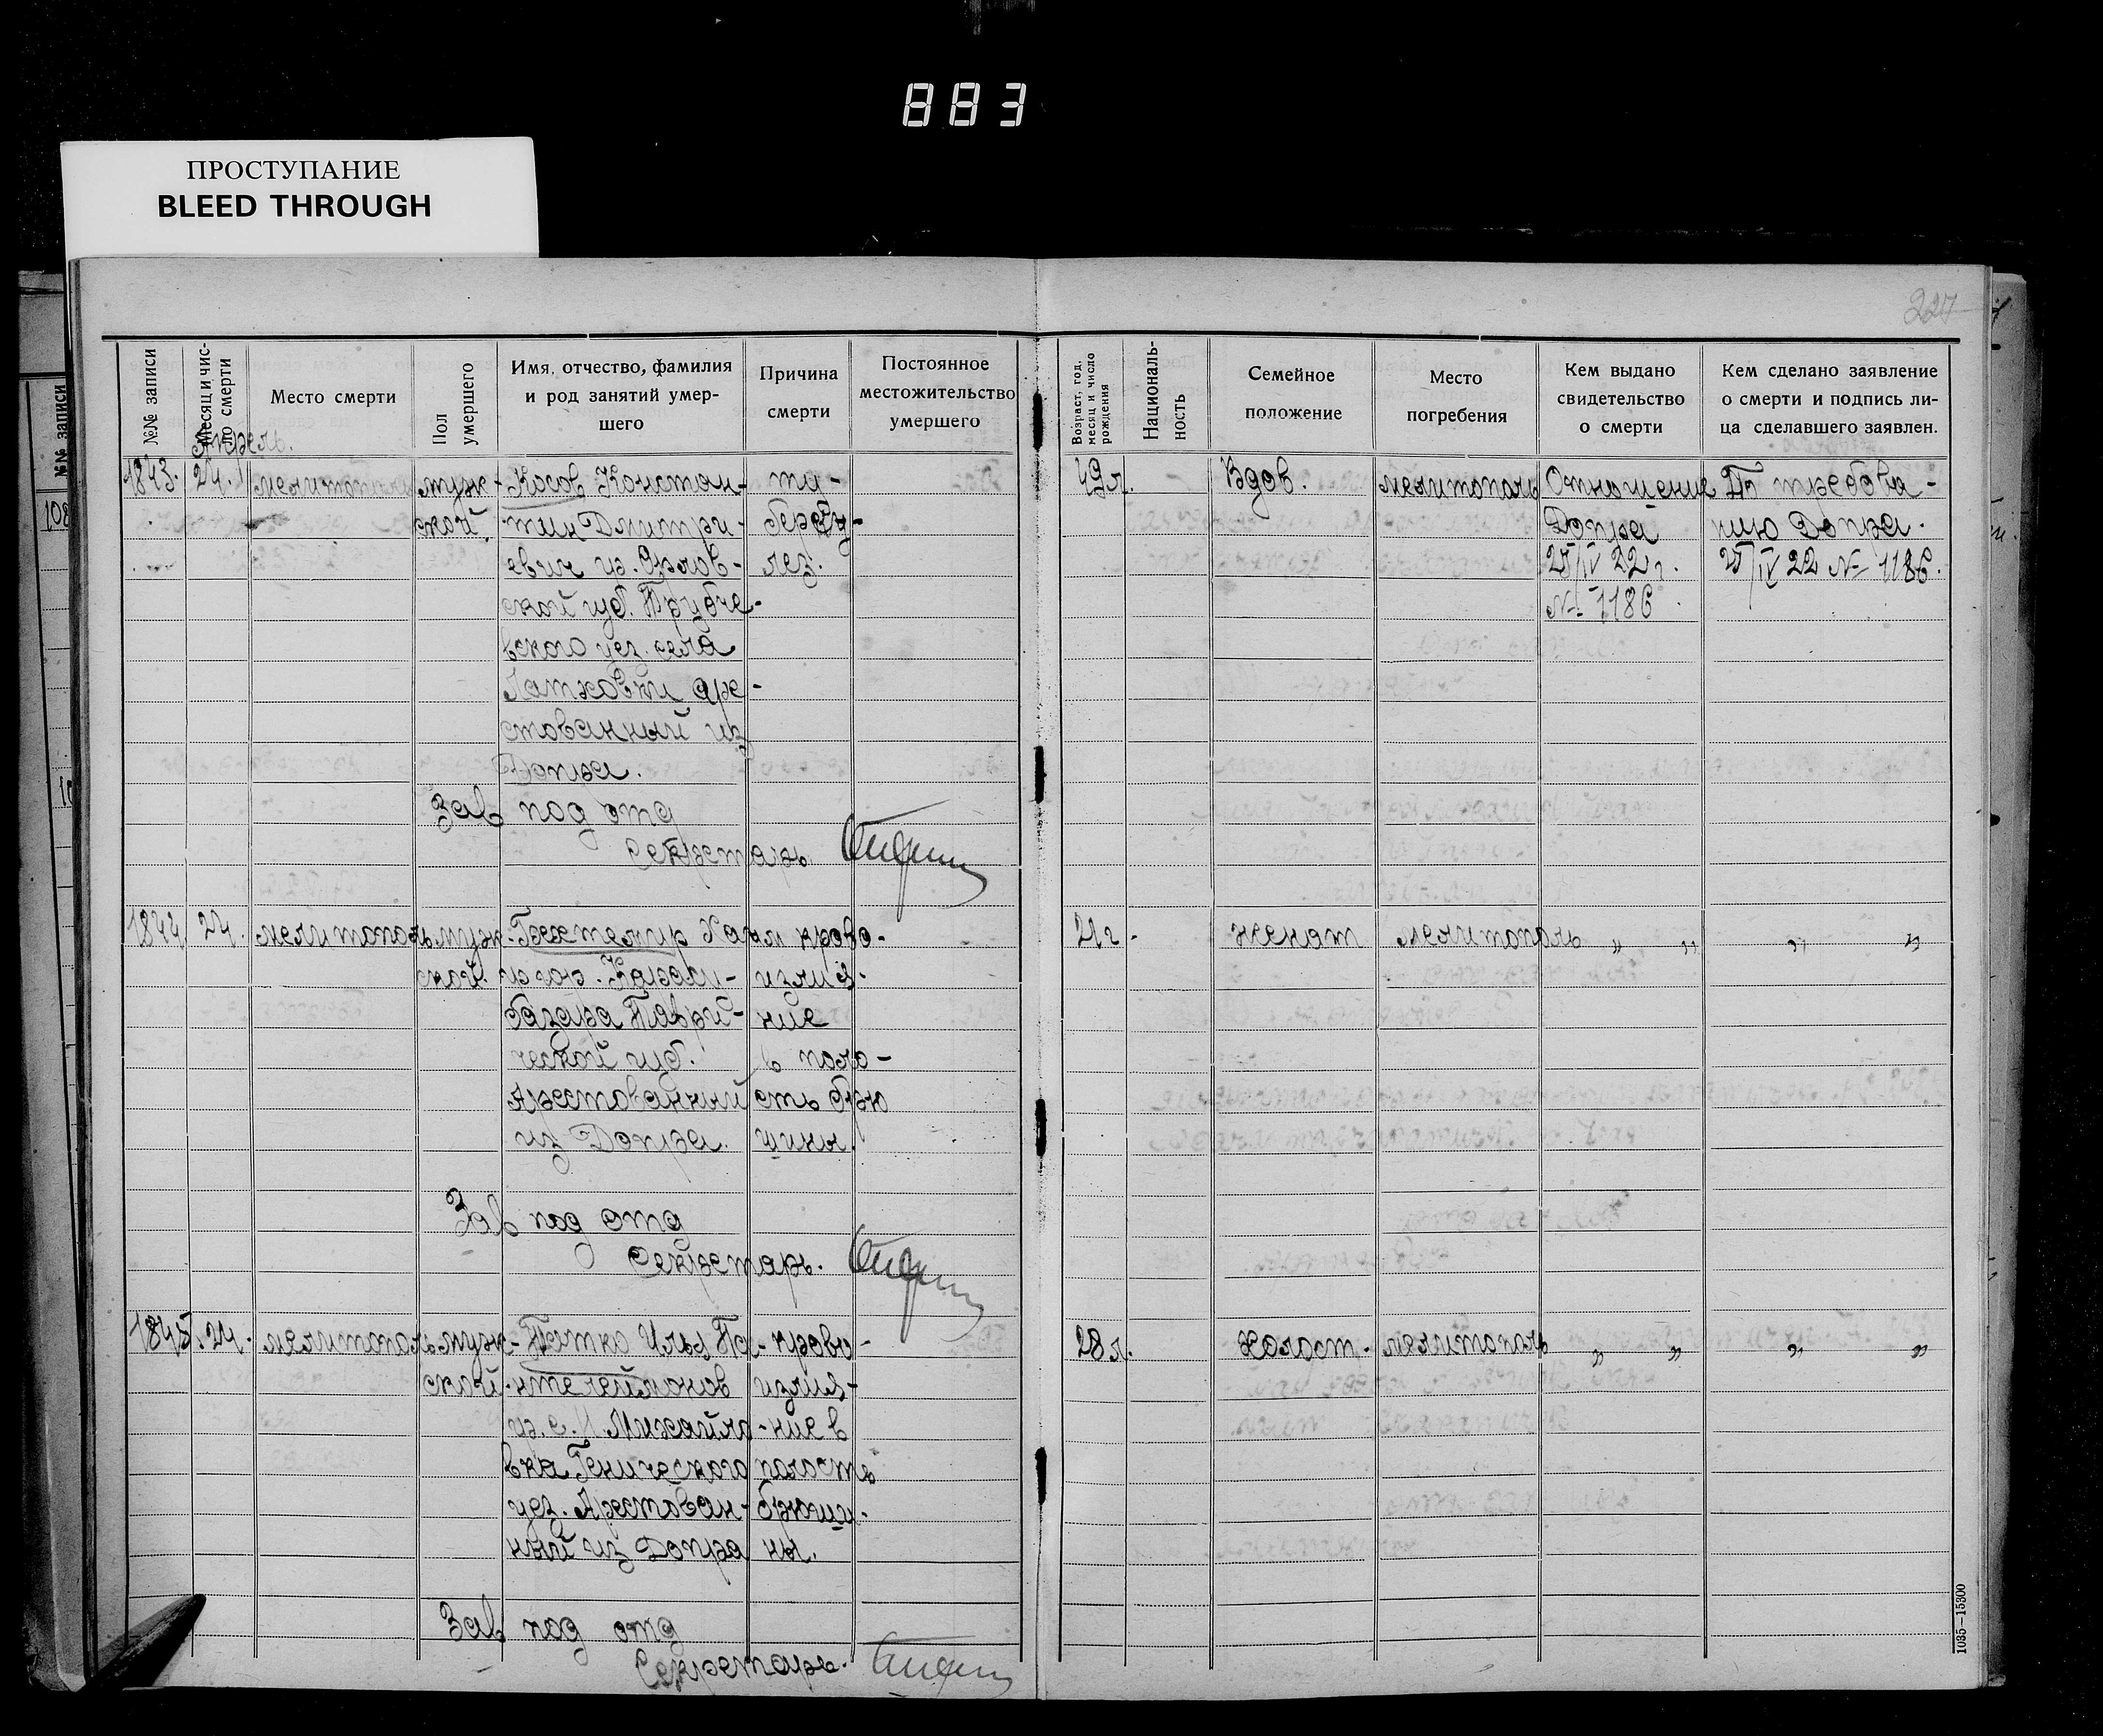 883
ПРОСТУПАНИЕ
BLEED THROUGH
227
№№ записи
Месяц и чис-
ло смерти
Место смерти
Пол
умершего
Имя, отчество, фамилия
и род занятий умер-
шего
Причина
смерти
Постоянное
местожительство
умершего
Возраст, год,
месяц и число
рождения
Националь-
ность
Семейное
положение
Место
погребения
Кем выдано
свидетельство
о смерти
Кем сделано заявление
о смерти и подпись ли-
ца сделавшего заявлен.
№№ записи
108
Апрель.
1843. 24. мелитополь муж- Косов Констан- ту- 49 л. Вдов. мелитополь Отношение По требова-
ской. тин Дмитри- берку- Допра нию Допра.
евич из. Орлов- лез. 25/IV 22 г. 25/IV 22 № 1186.
ской губ. Трубче- № 1186
вского уез. села
аре-
стованный из
Допра.
Зав под отд
Секретарь
1844 24. мелитополь муж- Бахтемир крово- 21 г. женат мелитополь „ „ „ „
ской. из гор. Карасу- излия-
базара Таври- ние
ческой губ. в поло-
Арестованный сть брю
из Допра. шины.
Зав под отд
Секретарь.
1845. 24. мелитополь муж- Илья Па- крово- 28 л. Холост. мелитополь „ „ „ „
ской. нтелеймонов излия-
из. с. Н. Михайло- ние в
вка Генического полость
уез. Арестован- брюши-
ный из Допра ны.
Зав под отд
Секретарь.
1035—15300